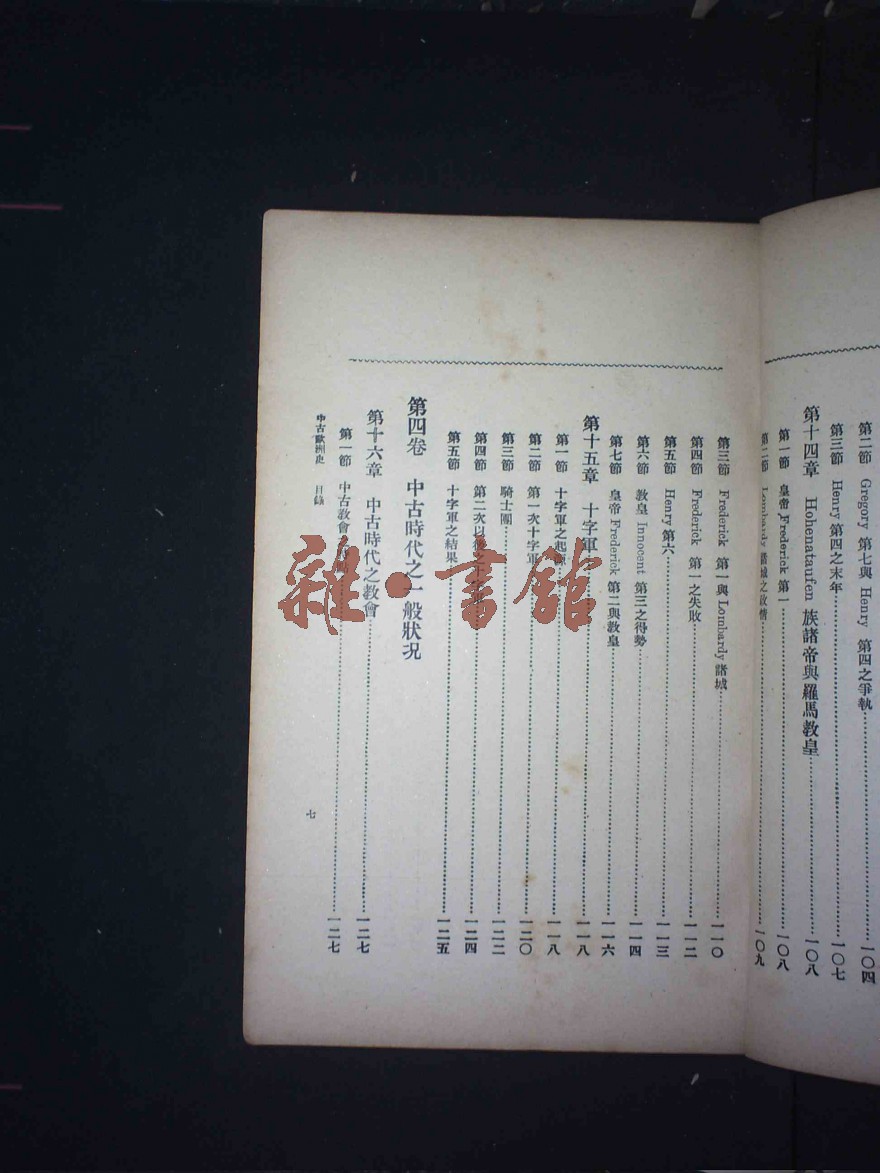 第二節 Gregory 第七與 Henry 第四之爭執……一〇四
第三節 Henry 第四之末年……一〇七
第十四章 Hohenataufen 族諸帝與羅馬教皇……一〇八
第一節 皇帝 Frederick 第一……一〇八
第二節 Lombardy 諸城之政情……一〇九
第三節 Frederick 第一與 Lombardy 諸城……一一〇
第四節 Frederick 第一之失敗……一一二
第五節 Henry 第六……一一三
第六節 教皇 Innocent 第三之得勢……一一四
第七節 皇帝 Frederick 第二與教皇……一一六
第十五章 十字軍……一一八
第一節 十字軍之起源……一一八
第二節 第一次十字軍……一二〇
第三節 騎士團……一二二
第四節 第二次以後之十字軍……一二四
第五節 十字軍之結果……一二五
第四卷 中古時代之一般狀況
第十六章 中古時代之教會……一二七
第一節 中古教會……一二七
中古歐洲史 目錄
七
雜·書館